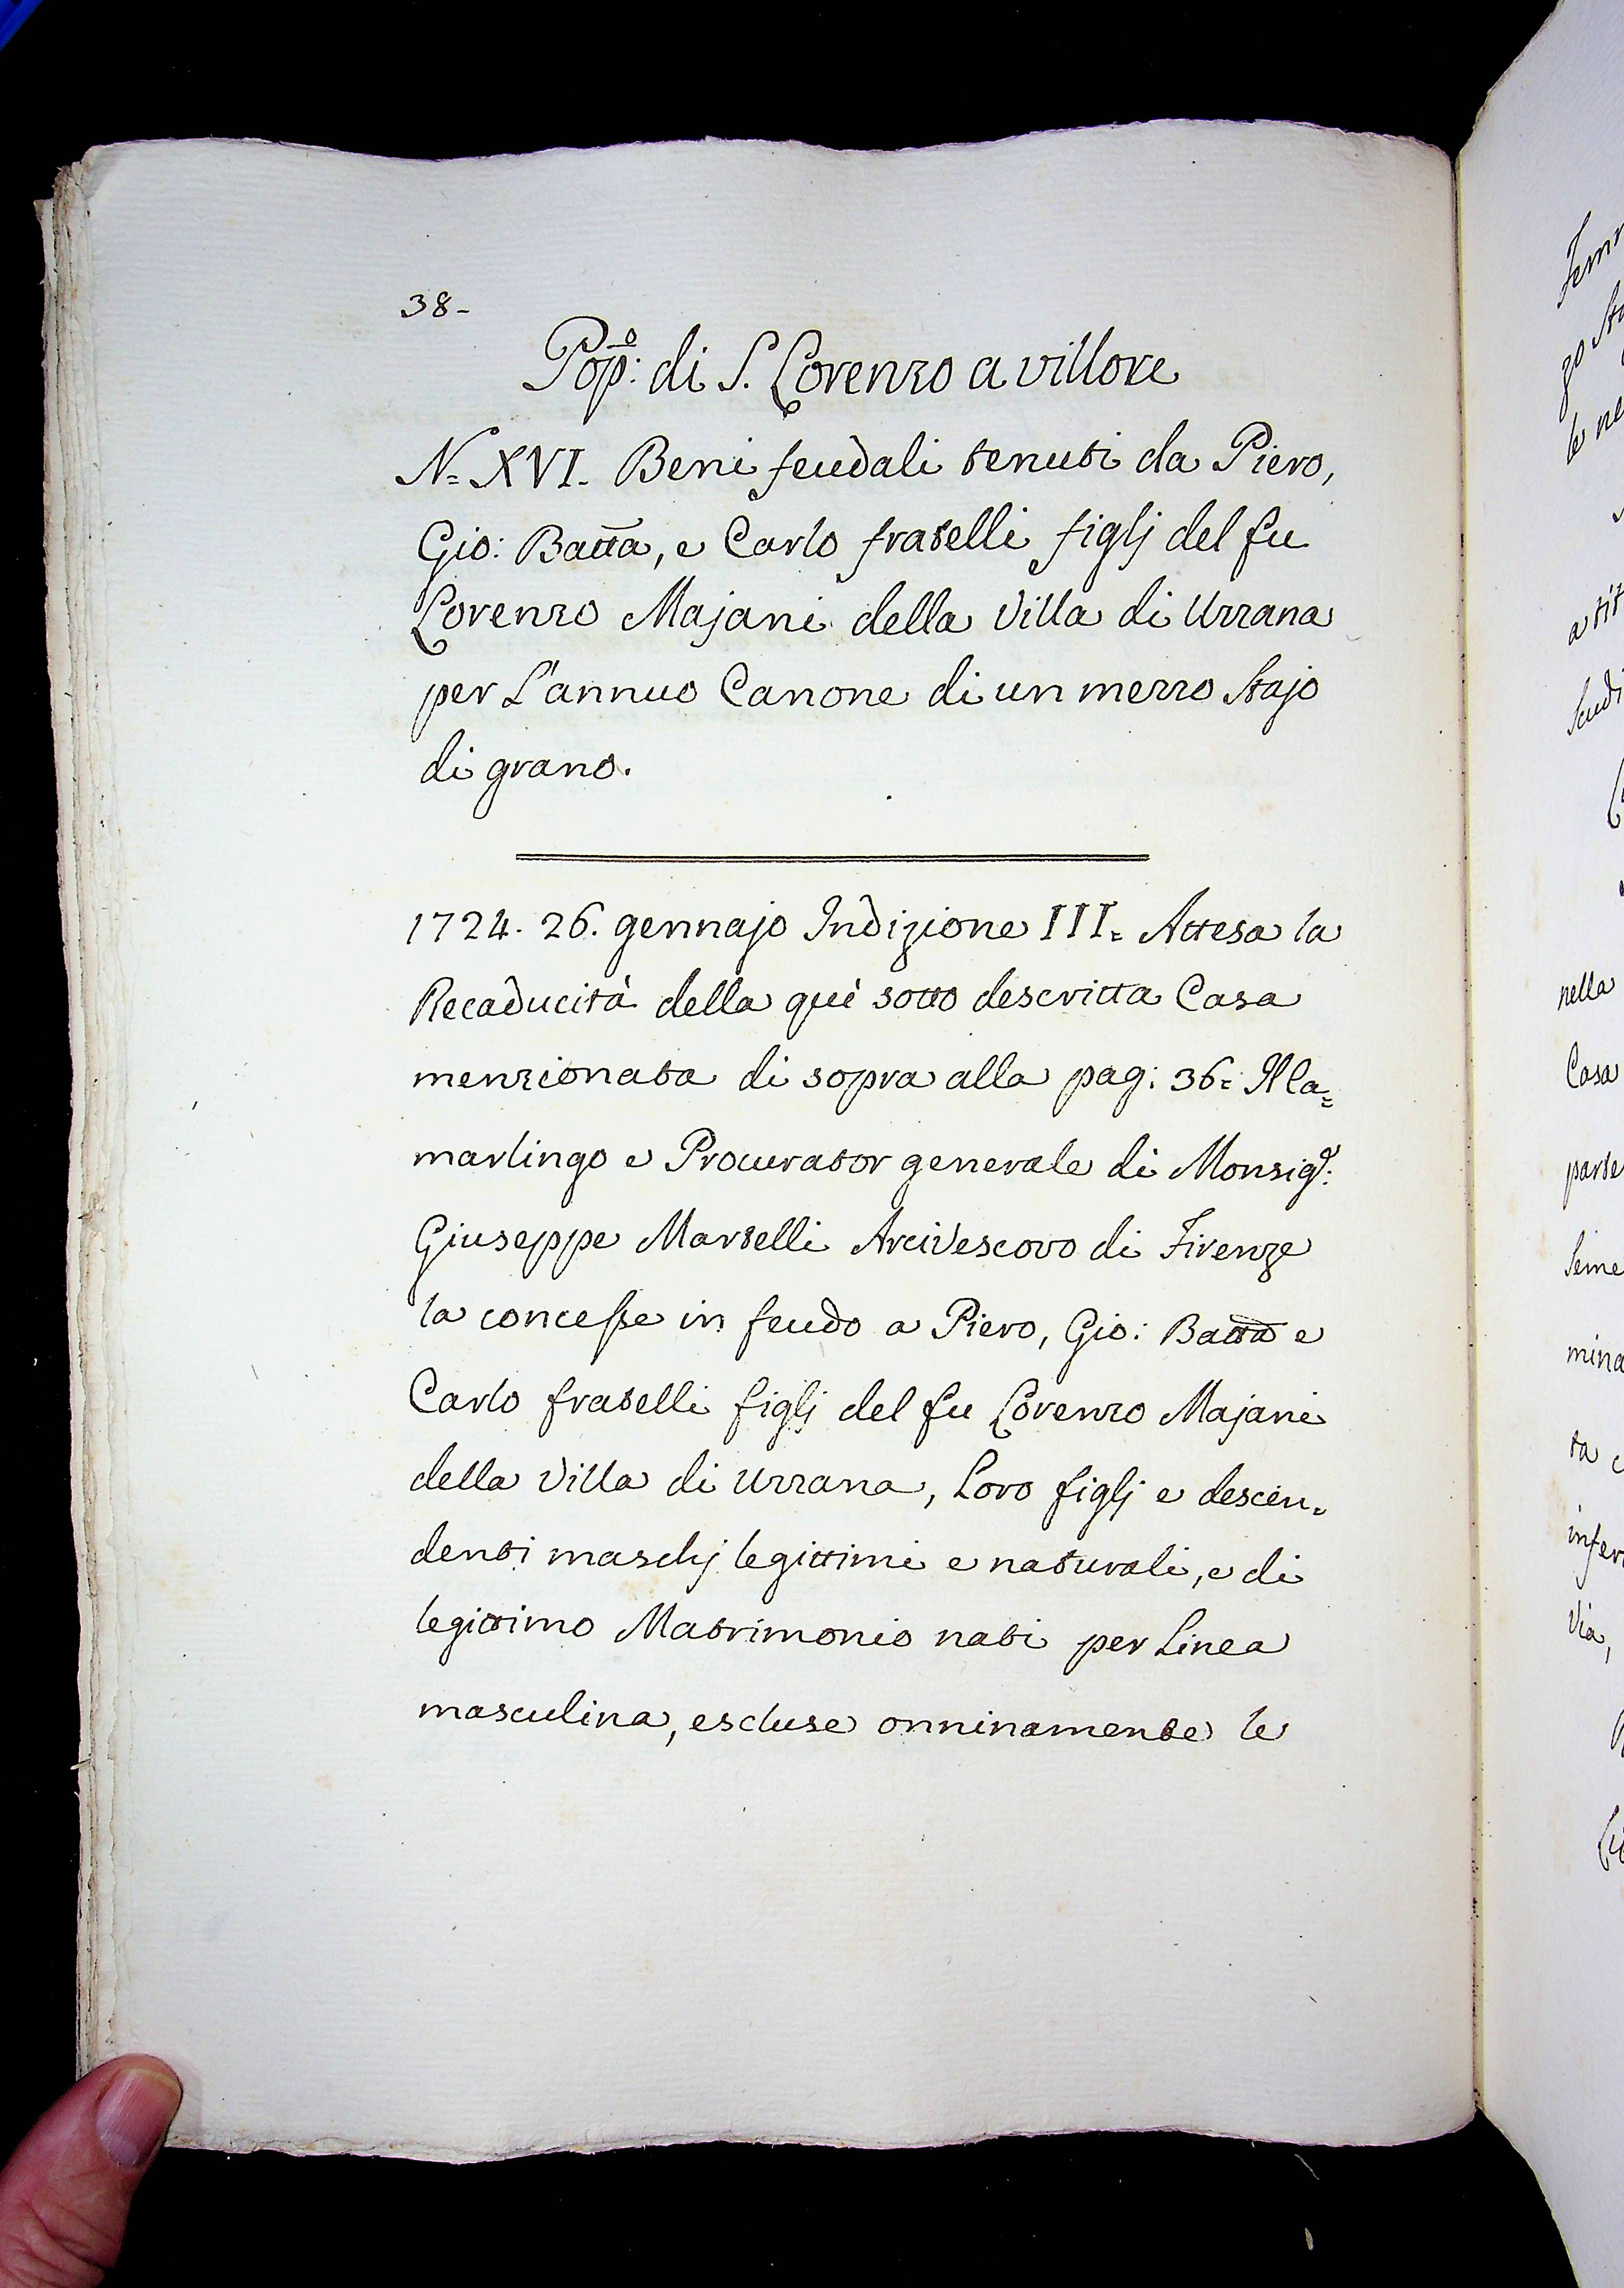 38-
Pop.º: di S. Lorenzo a villore
N.= XVI. Beni feudali tenuti da Piero,
Gio: Batta, e Carlo fratelli figlj del fu
Lorenzo Majani della Villa di Uzzana
per L'annuo Canone di un mezzo Stajo
di grano.
1724. 26. gennajo Indizione III= Attesa la
Recaducità della quì sotto descritta Casa
menzionata di sopra alla pag: 36= Il Ca=
marlingo e Procurator generale di Monsig.r:
Giuseppe Martelli Arcivescovo di Firenze
la concesse in feudo a Piero, Gio: Batta e
Carlo fratelli figlj del fu Lorenzo Majani
della Villa di Uzzana, Loro figlj e descen=
denti maschj legittimi e naturali, e di
legittimo Matrimonio nati per Linea
masculina, escluse onninamente le
nella
Casa
parte
mina
ta
Via,